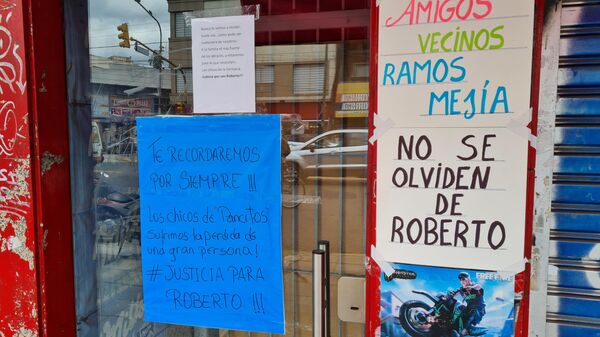 Justicia por vos Roberto!!!
TE RECORDAREMOS
POR SIEMPRE !!!
Los chicos de "Pancitos"
sufrimos la perdida de
una gran persona!
#JUSTICIA PARA
ROBERTO !!!
AMIGOS
VECINOS
RAMOS
MEJÍA
NO SE
OLVIDEN
DE
ROBERTO
FREE FIRE